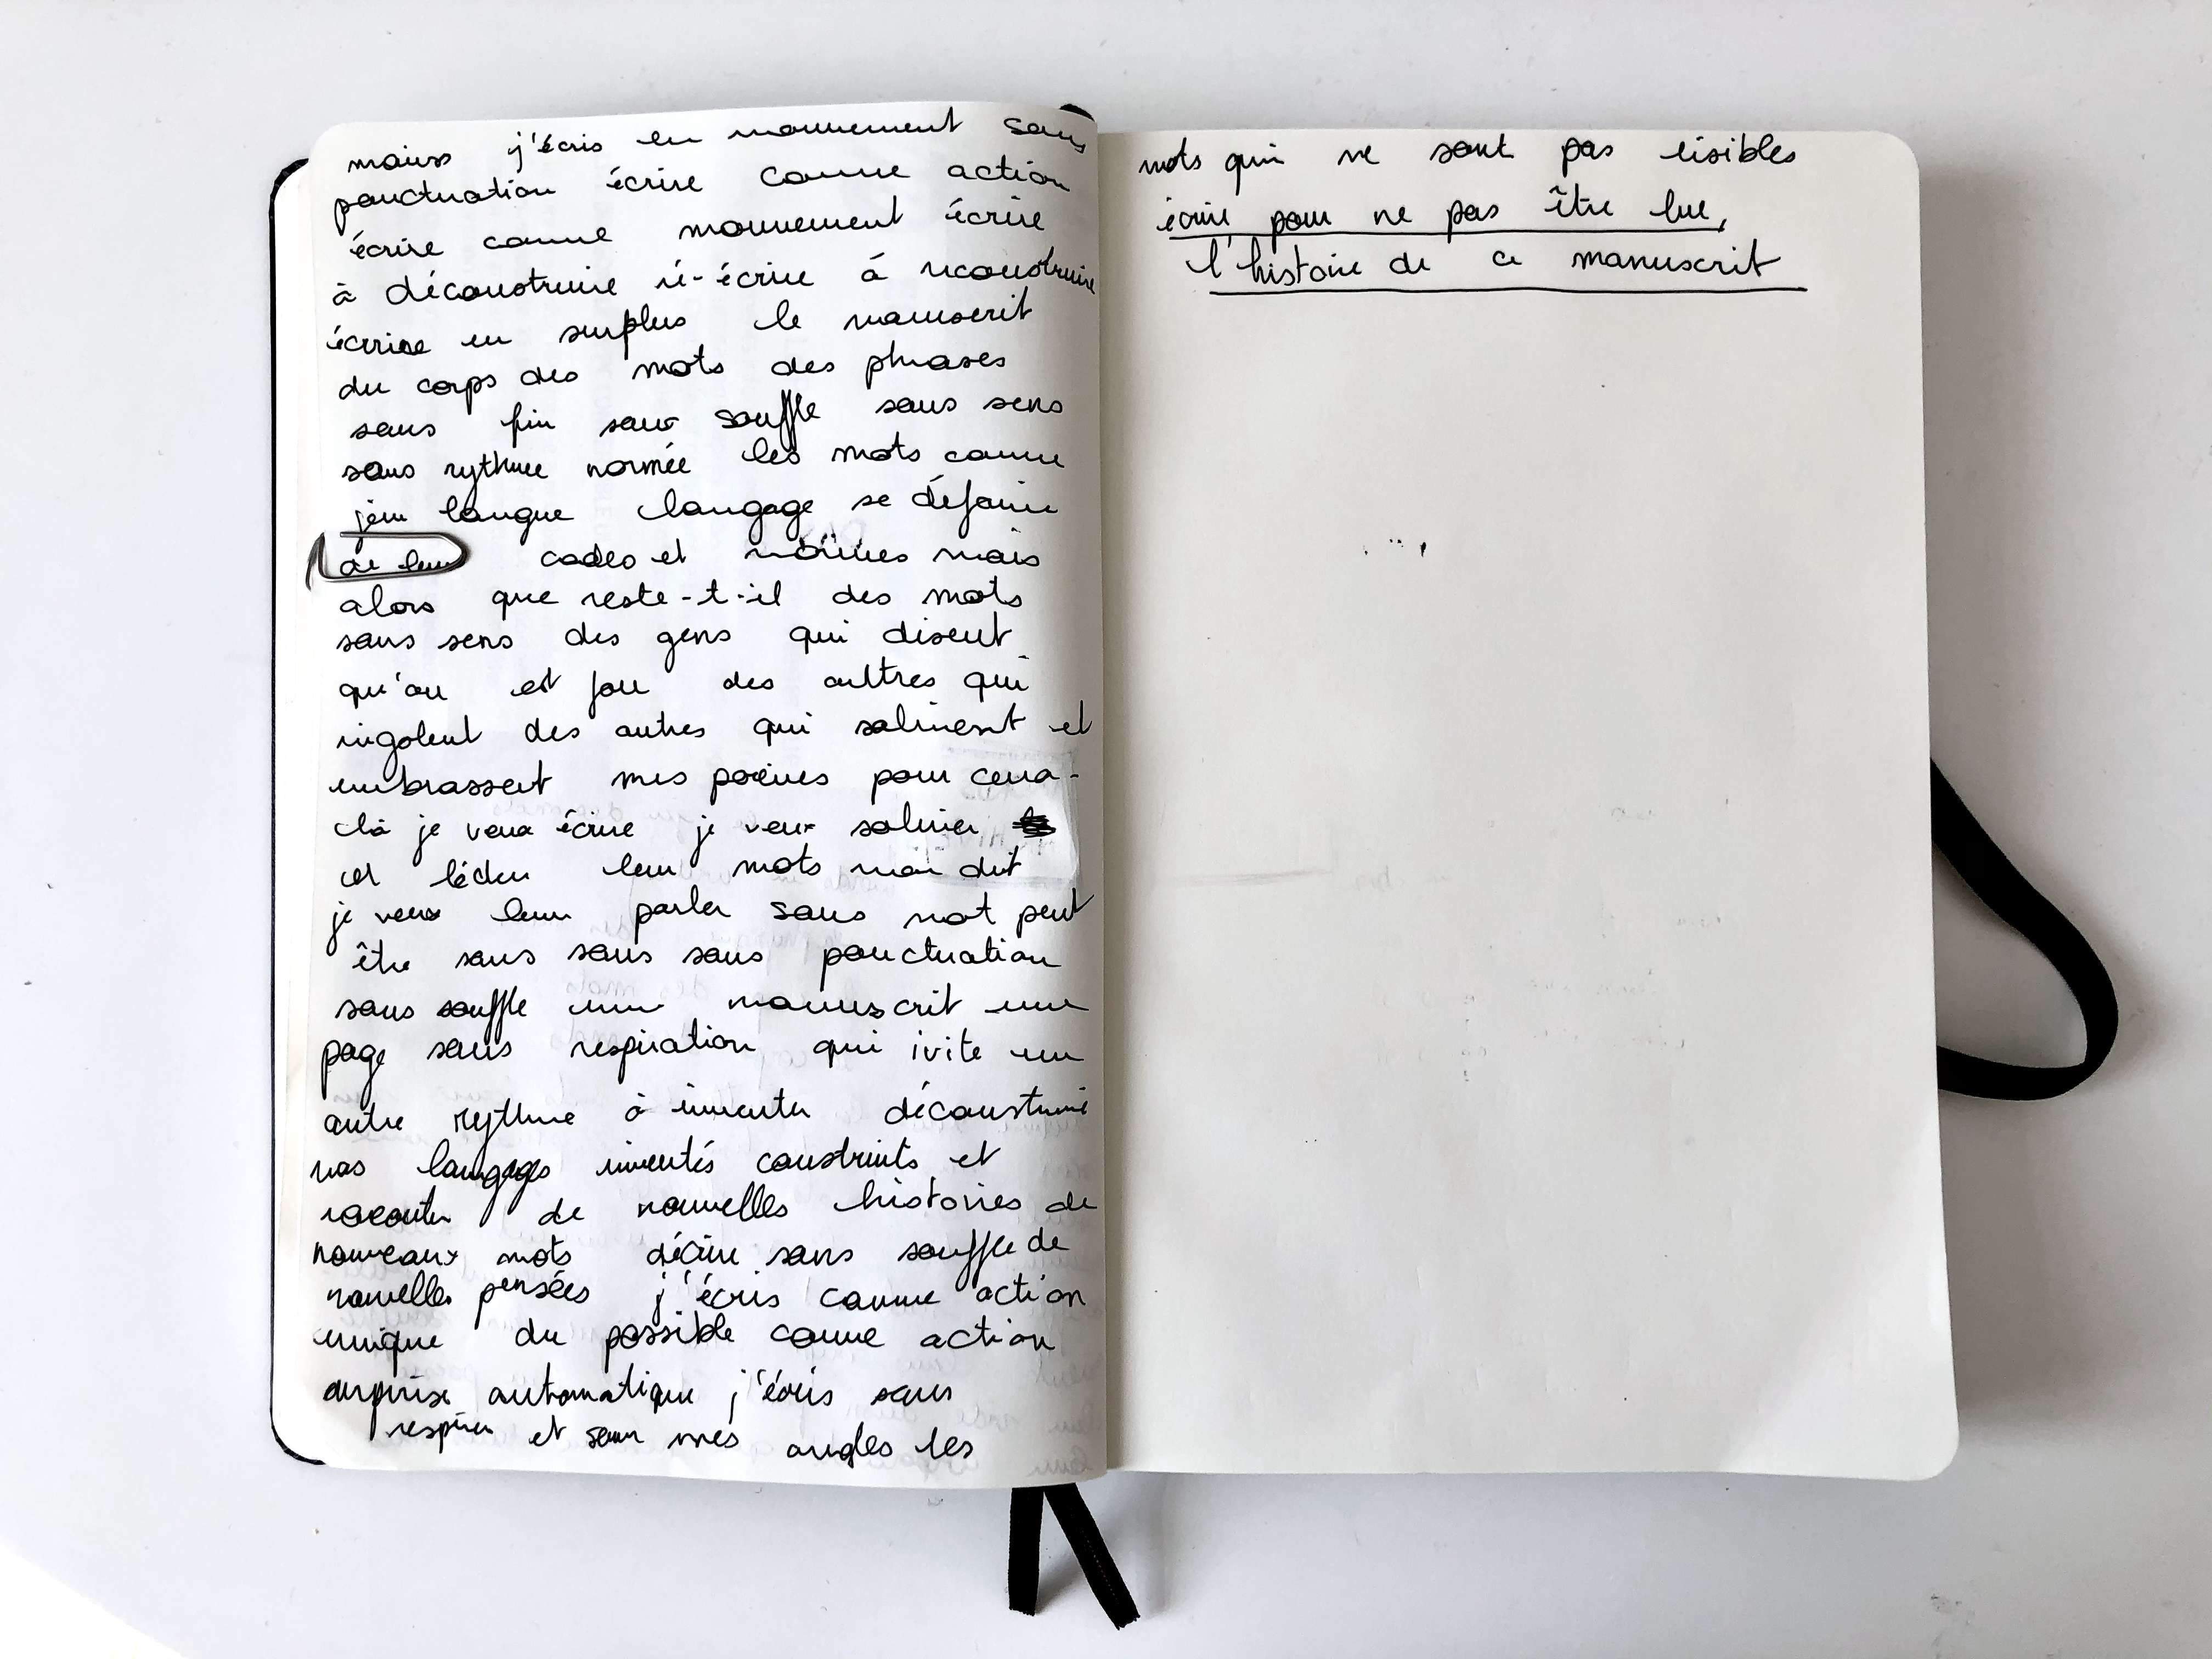 mains j'écris en mouvement sans
ponctuation écrire comme action
écrire comme mouvement écrire
à déconstruire ré-écrire à reconstruire
écrire en surplus le manuscrit
du corps des mots des phrases
sans fin sans souffle sans sens
sans rythme normée les mots comme
jeu langue langage se défaire
de leur codes et normes mais
alors que reste-t-il des mots
sans sens des gens qui disent
qu'on est fou des aultres qui
rigolent des autres qui salivent et
embrassent mes poèmes pour ceux-
là je veux écrire je veux saliver
et lécher leur mots mon dit
je veux leur parler sans mot peut
être sans sans sans ponctuation
sans souffle un manuscrit une
page sans respiration qui ivite un
autre rythme à inventer déconstruire
nos langages inventés construits et
raconter de nouvelles histoires de
nouveaux mots décrire sans souffle de
nouvelles pensées j'écris comme action
unique du possible comme action
surprise automatique j'écris sans
respirer et sous mes ongles les
mots qui ne sont pas lisibles
écrire pour ne pas être lue,
l'histoire de ce manuscrit